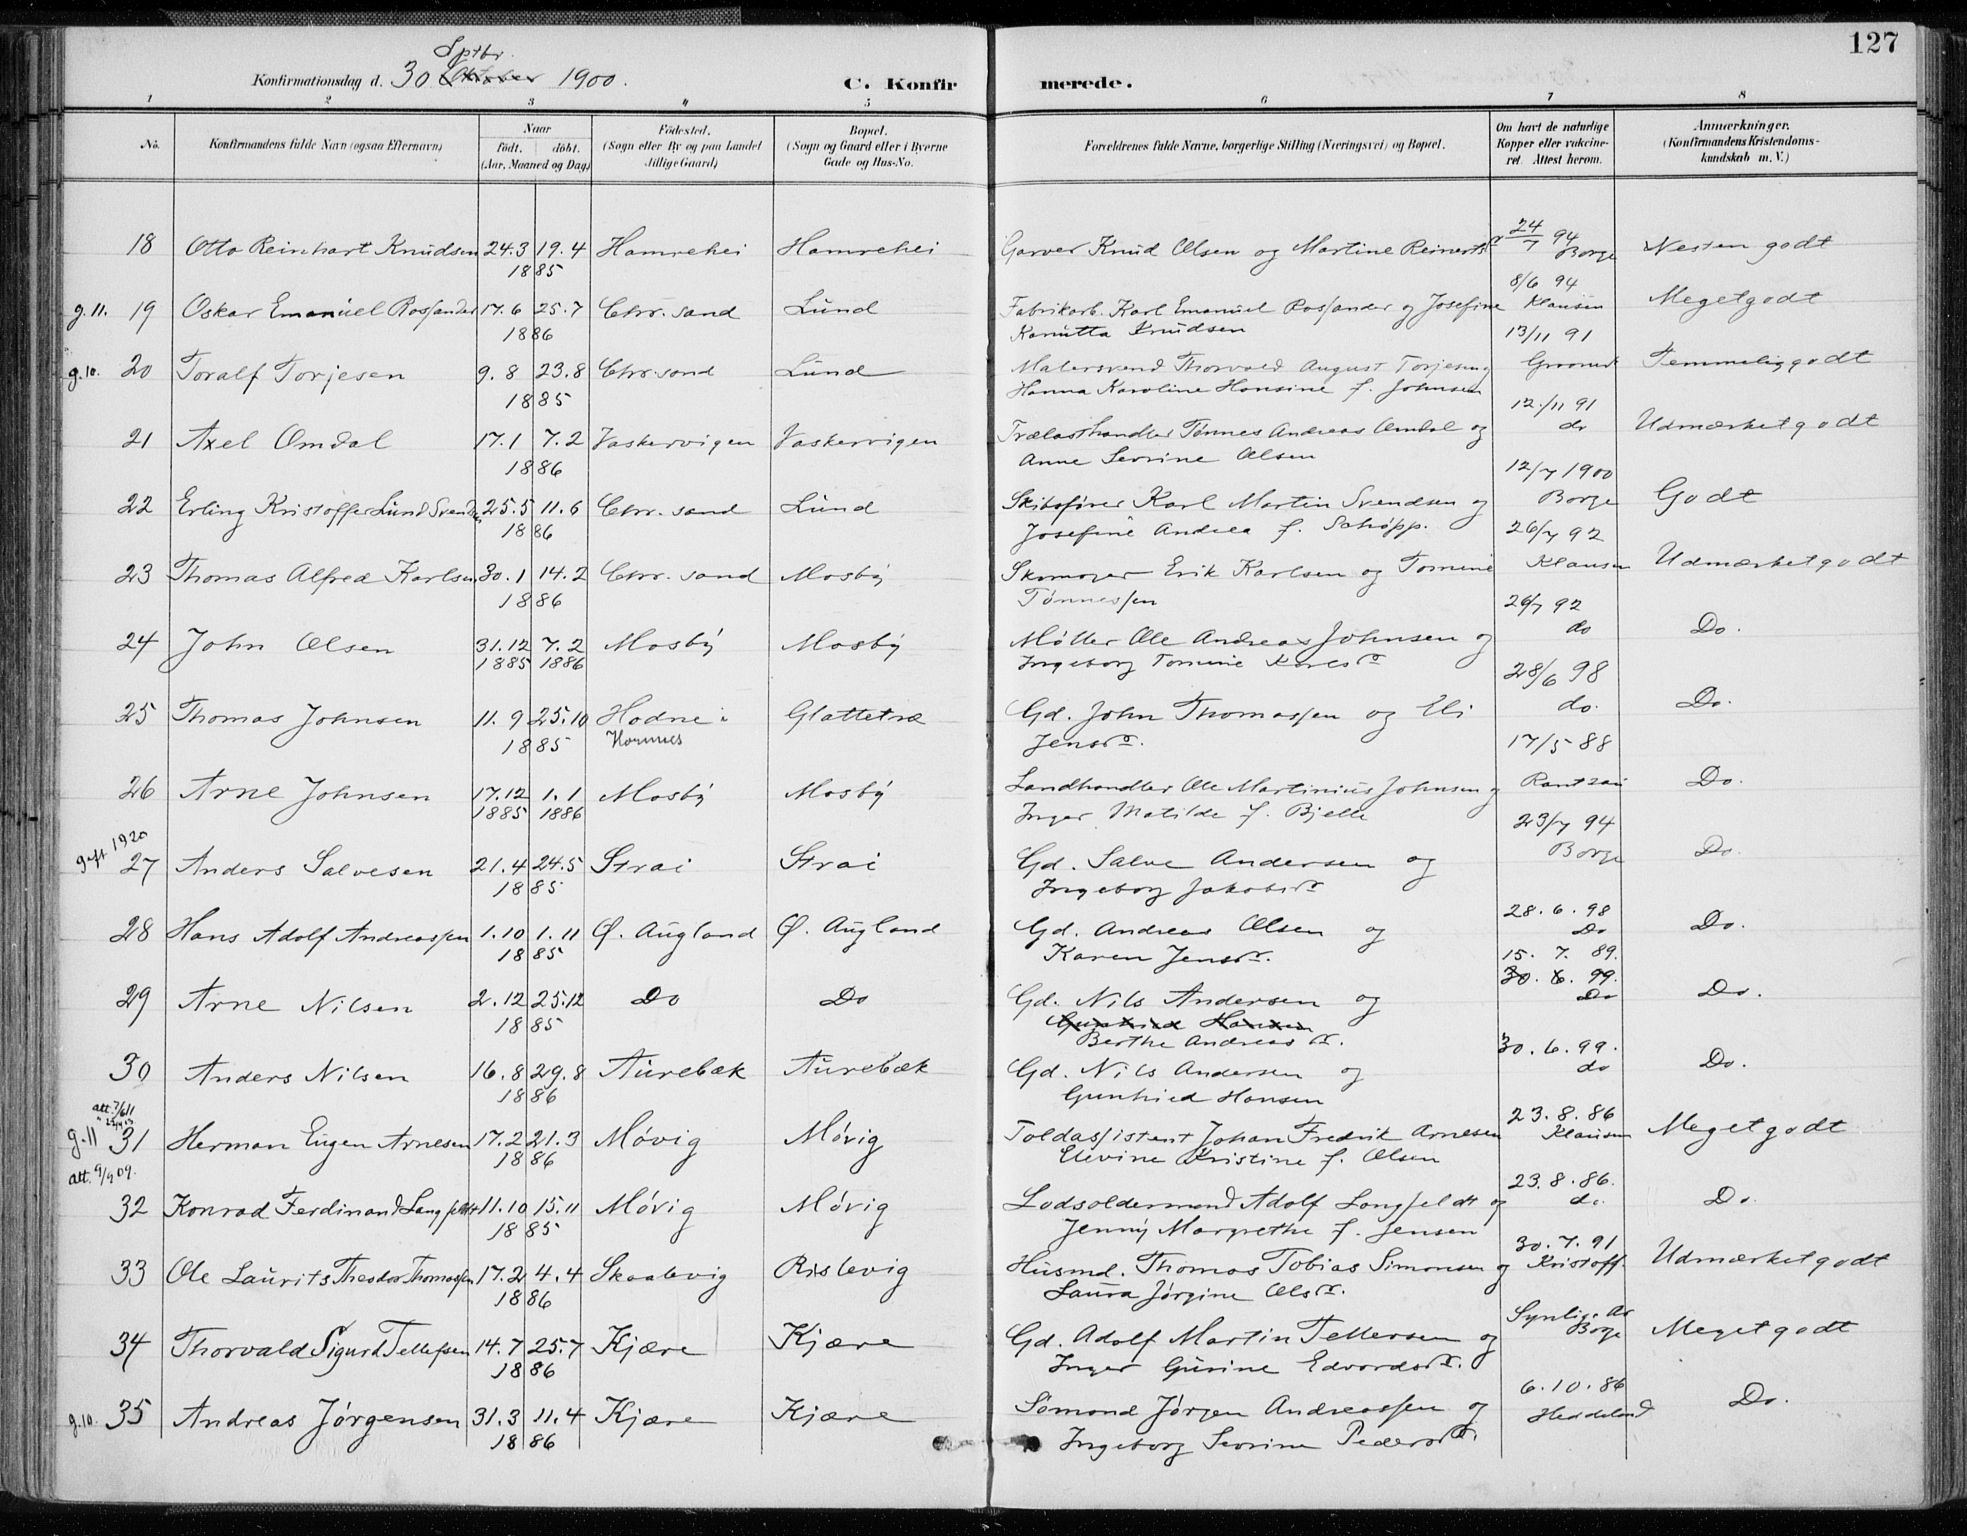 127
Sptbr.
Konfirmationsdag d. 30 Oktober 1900.
C. Konfirmerede.
1 2 3 4 5 6 7 8
No.
Konfirmandens fulde Navn (ogsaa Efternavn)
Naar
født. døbt.
(Aar, Maaned og Dag)
Fødested.
(Sogn eller By og paa Landet
tillige Gaard)
Bopæl.
(Sogn og Gaard eller i Byerne
Gade og Hus-No.
Forældrenes fulde Navne, borgerlige Stilling (Næringsvei) og Bopæl.
Om havt de naturlige
Kopper eller vakcine-
ret. Attest herom.
Anmærkninger.
(Konfirmandens Kristendoms-
kundskab m. V.)
18 Otto Reinhart Knudsen 24.3 19.4 Hamrehei Hamrehei Garver Knud Olsen og Martine Reinertsdr 24/7 94 Borge Nesten godt
1885
g. 11. 19 Oskar Emanuel Rossander 17.6 25.7 Chr.sand Lund Fabrikarb. Karl Emanuel Rossander og Josefine 8/6 94 Klausen Megetgodt
1886 Knudsen
20 g.10. Toralf Torjesen 9.8 23.8 Chr.sand Lund Malersvend Thorvald August Torjesen og 13/11 91 Temmelig godt
1885 Hanna Karoline Hansine f. Johnsen
21 Axel Omdal 17.1 7.2 Vaskervigen Vaskervigen Trælasthandler Tønnes Andreas Omdal og 12./11 91 do Udmærket godt
1886 Anne Severine Olsen
22 Erling Kristoffer Lund Svendsen 25.5 11.6 Chr. sand Lund Skibsfører Karl Martin Svendsen og 12/7 1900 Borge Godt
1886 Josefine Andrea f. Schøpp.
23 Thomas Alfred Karlsen 30.1 14.2 Chr. sand Mosby Skomager Erik Karlsen og Tomine 26/7 92 Klausen Udmærket godt
1886 Tønnessen
24 John Olsen 31.12 7.2 Mosby Mosby Møller Ole Andreas Johnsen og 26/7 92 do Do.
1885 1886 Ingeborg Tomine Karlsdr
25 Thomas Johnsen 11.9 25.10 Hodne i Glattetræ Gd. John Thomassen og Eli 28/6 98 do. Do.
1885 Hornnes Jensdr.
26 Arne Johnsen 17.12 1.1 Mosby Mosby Landhandler Ole Martinius Johnsen og 17/5 88 Rantzau Do.
1885 1886 Inger Matilde f. Bjelle
gift 1920 27 Anders Salvesen 21.4 24.5 Strai Strai Gd. Salve Andersen og 23/7 94 Borge Do.
1885 Ingeborg Jakobsdr
28 Hans Adolf Andreassen 1.10 1.11 Ø. Augland Ø. Augland Gd. Andreas Olsen og 28.6.98 Do Do.
1885 Karen Jensdr.
29 Arne Nilsen 2.12 25.12 Do Do Gd. Nils Andersen og 15. 7. 89. 30. 6. 99. Do Do.
1885 Gunhild Hansen
Berthe Andreasdr.
30 Anders Nilsen 16.8 29.8 Aurebæk Aurebæk Gd. Nils Andersen og 30.6.99. do Do.
1886 Gunhild Hansen
att. 7/6 11
g. 11 31 Herman Eugen Arnesen 17.2 21.3 Møvig Møvig Toldassistent Johan Fredrik Arnesen 23.8.86 Klausen Megetgodt
1886 Elevine Kristine f. Olsen
att. 9/9 09.
32 Konrad Ferdinand Langfeldt 11.10 15.11 Møvig Møvig Lodsoldermand Adolf Langfeldt og 23.8.86. do. Do
1885 Jenny Margrethe f. Jensen
33 Ole Laurits Theodor Thomassen 17.2 4.4 Skaalevig Rislevig Husmd. Thomas Tobias Simonsen og 30.7.91 Kristoff. Udmærket godt
1886 Laura Jørgine Olsdr.
34 Thorvald Sigurd Tellefsen 14.7 25.7 Kjære Kjære Gd. Adolf Martin Tellefsen og Synlig. Ar Borge Megetgodt
1886 Inger Gurine Edvardsdr.
g.10. 35 Andreas Jørgensen 31.3 11.4 Kjære Kjære Sømand Jørgen Andreassen og 6.10.86 Heddeland Do.
1886 Ingeborg Severine Pedersdr.